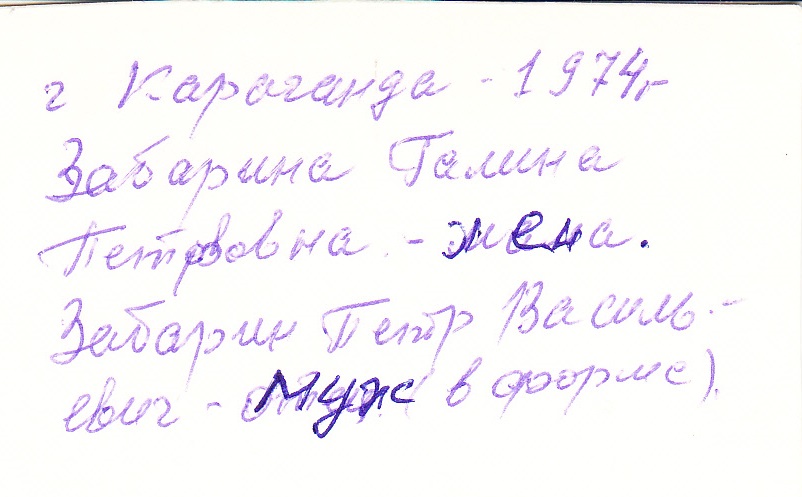 г Караганда - 1974г
Забарина Галина
Петровна - жена.
Забарин Петр Василь-
евич - муж (в форме).